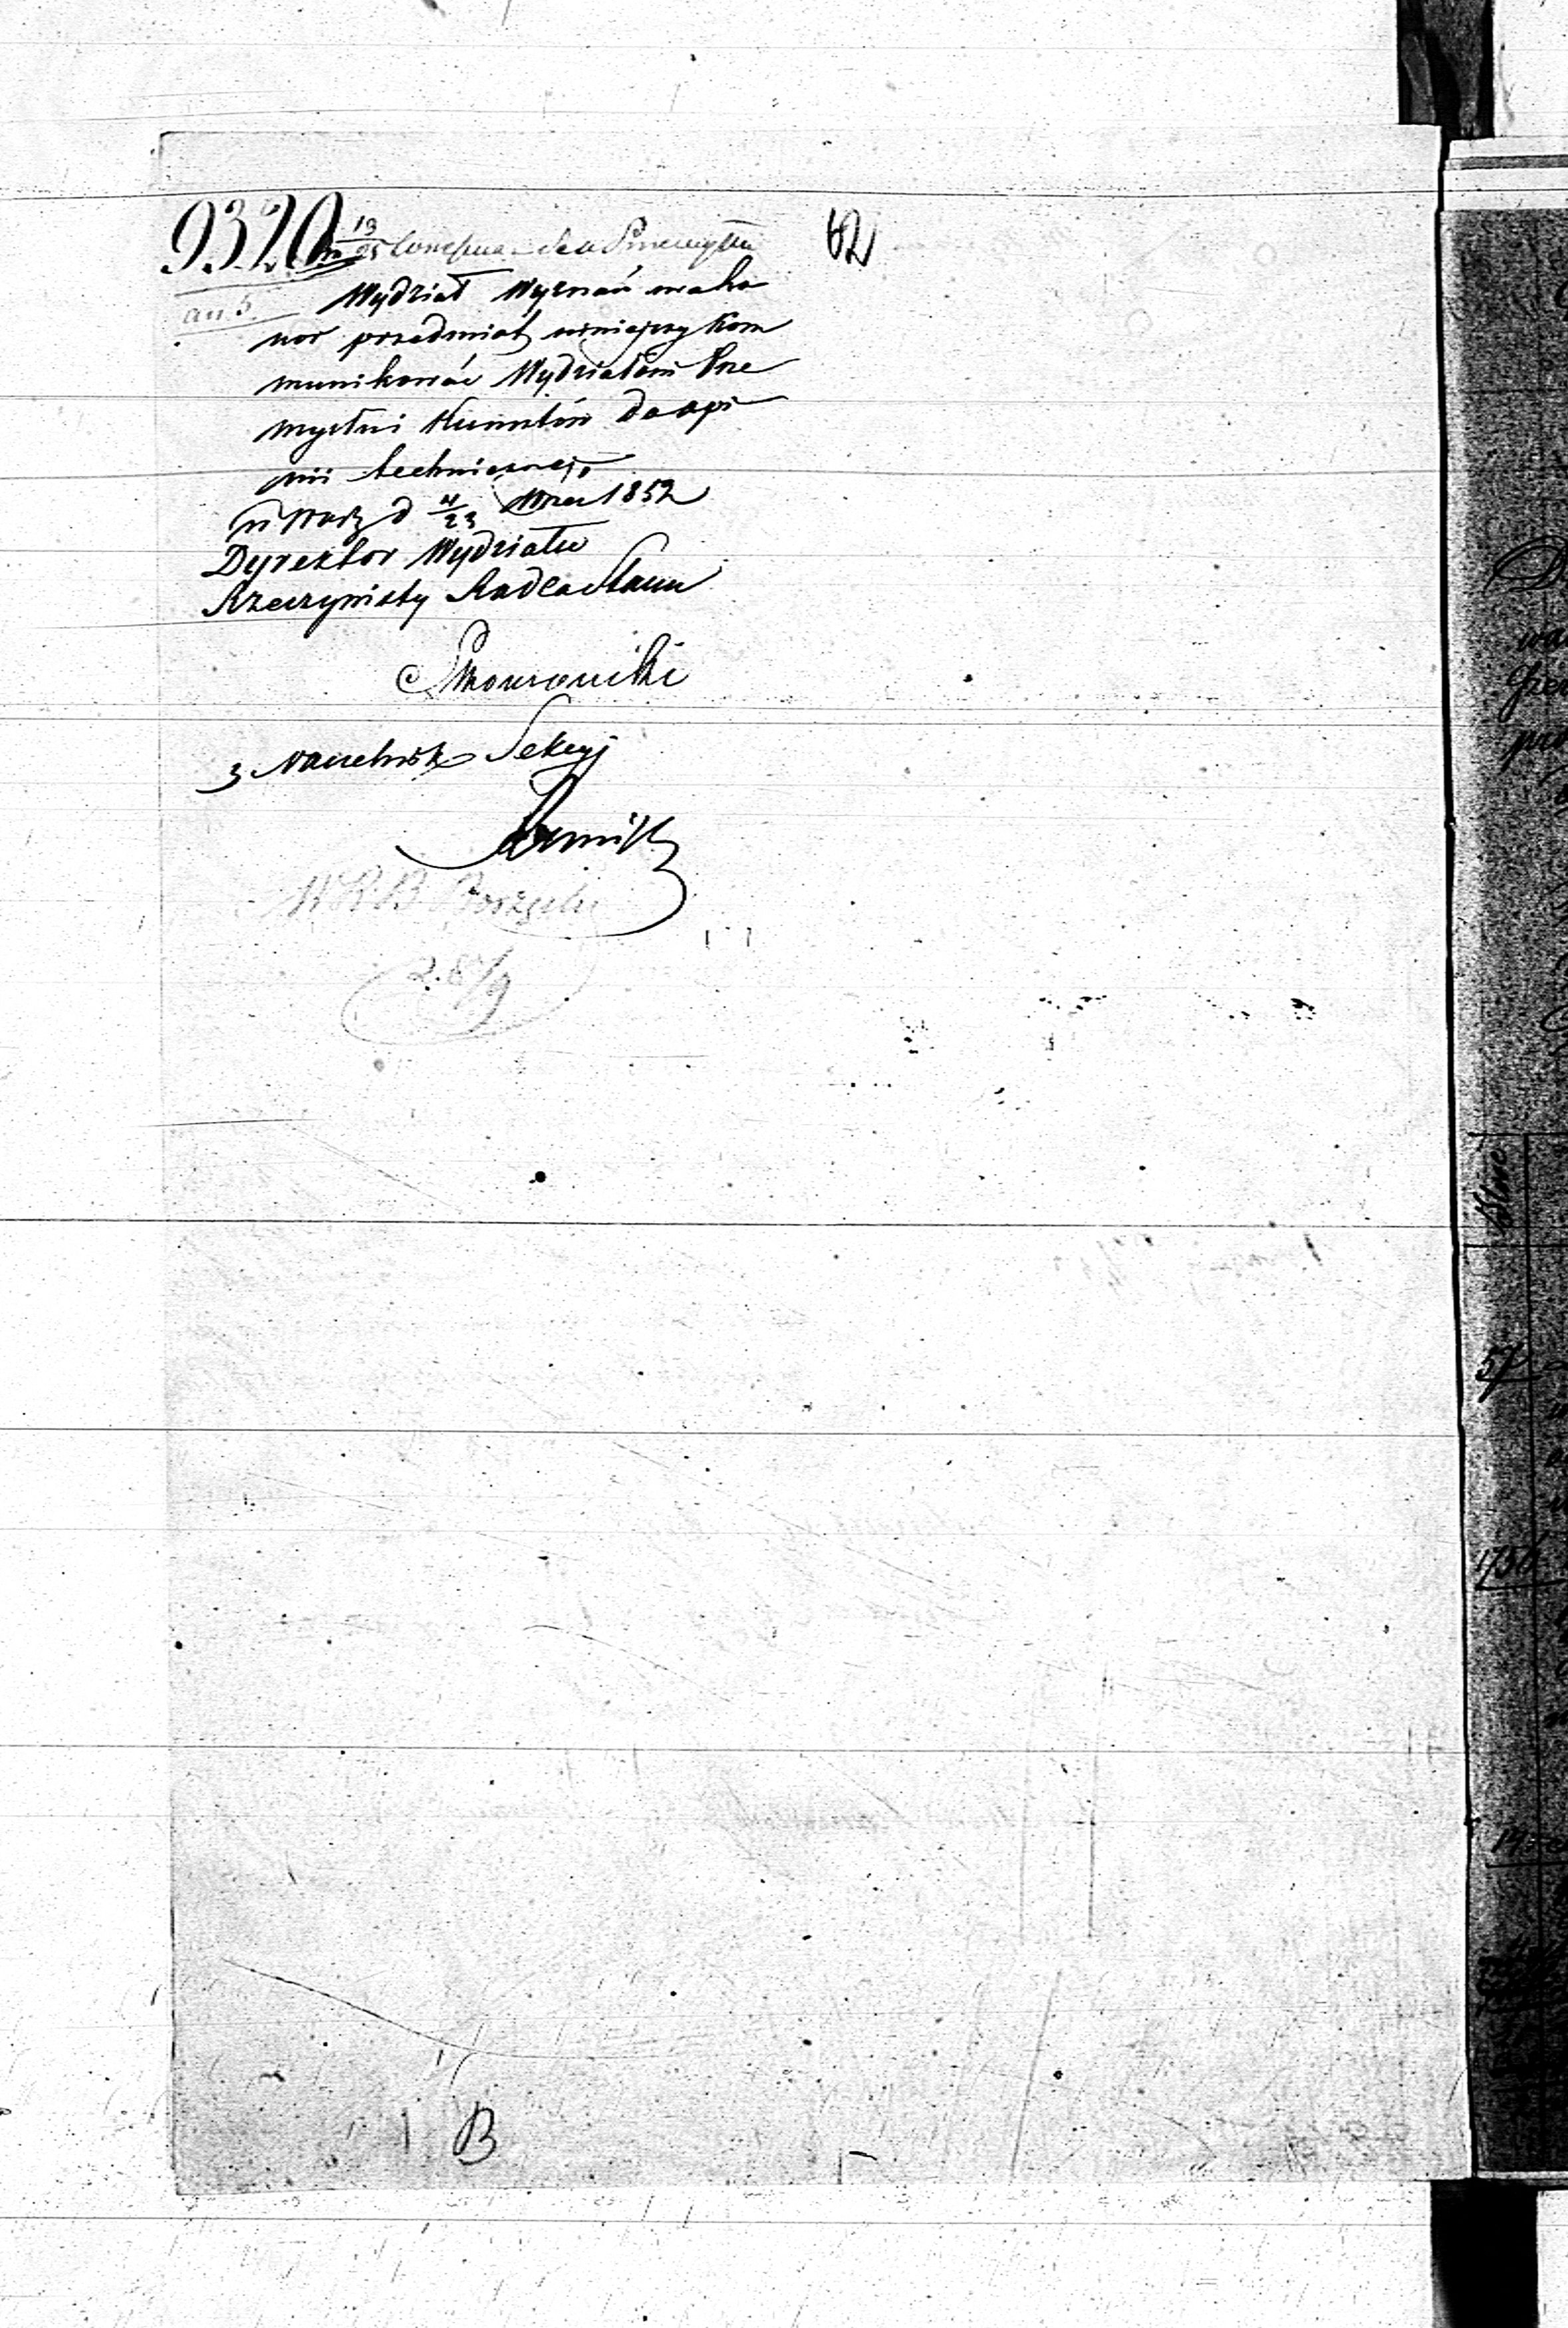 9320 13/25 62
an. 5. Wydział Wyznań ma ho
nor przedmiot niniejszy kom
munikować Wydziałowi Prze
mysłu i Kunsztów do opi
nii technicznej.
w Warz d 11/23 Wrze 1852
Dyrektor Wydziału
Rzeczywisty Radca Stanu
z Naczelnik Sekcyi
W R. B.
28/9
B